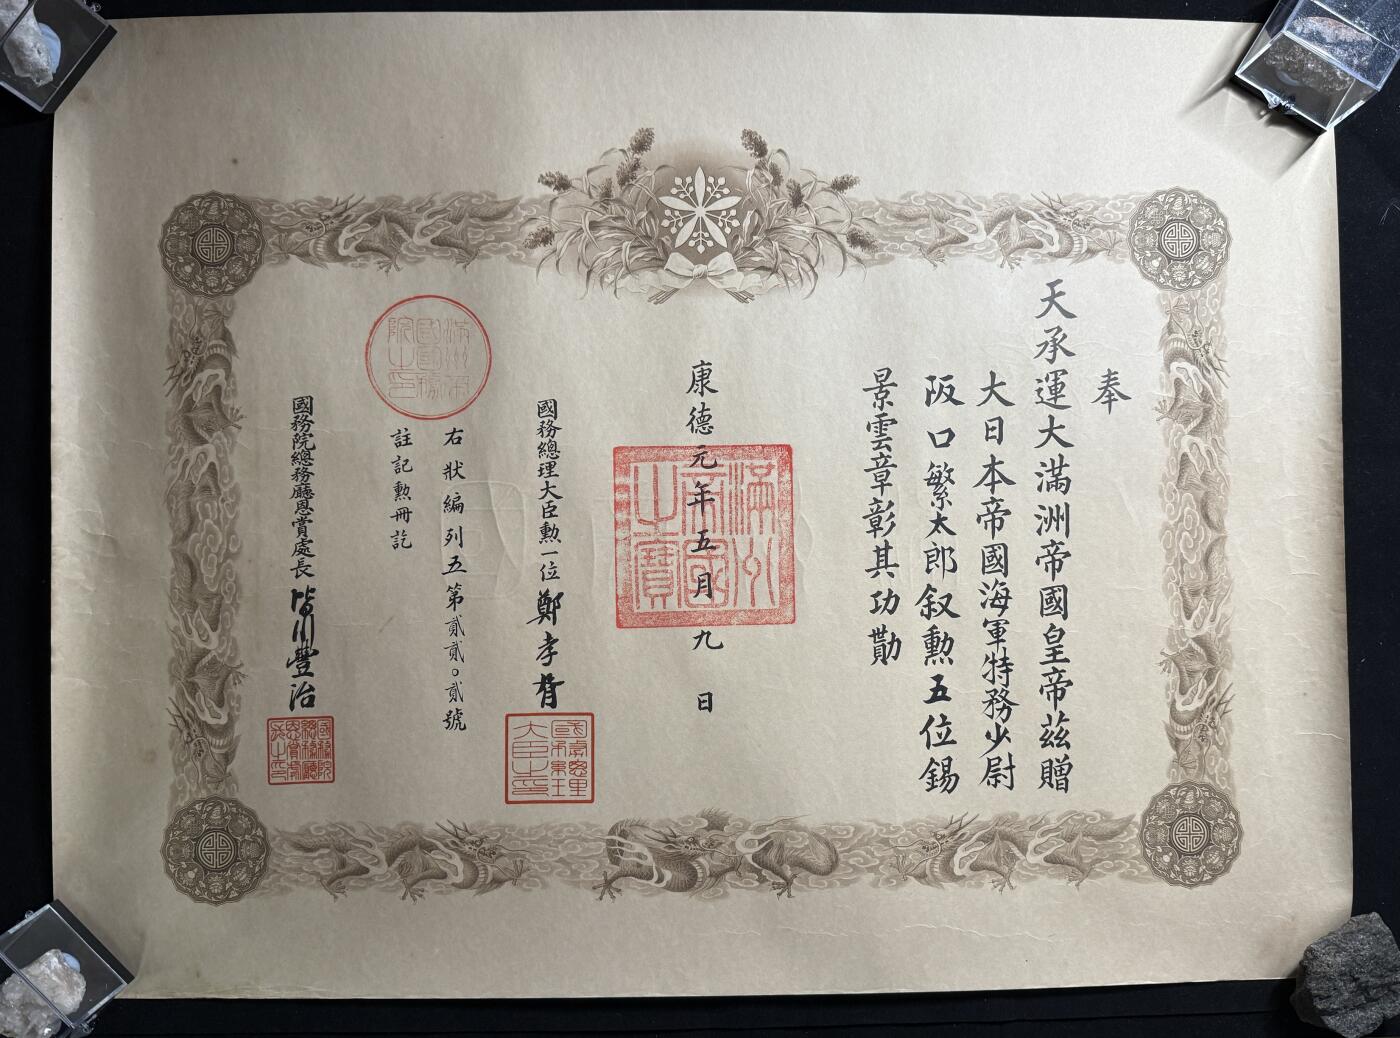 奉
天承運大滿洲帝國皇帝茲贈
大日本帝國海軍特務少尉
阪口繁太郎叙勲五位錫
景雲章彰其功勛
康德元年五月九日
滿洲帝國之寶
國務總理大臣勲一位鄭孝胥
國務總理大臣之印
右狀編列五第貳貳〇貳號
註記勲冊訖
滿洲帝國國務院之印
國務院總務廳恩賞處長皆川豐治
國務院總務廳恩賞處長之印